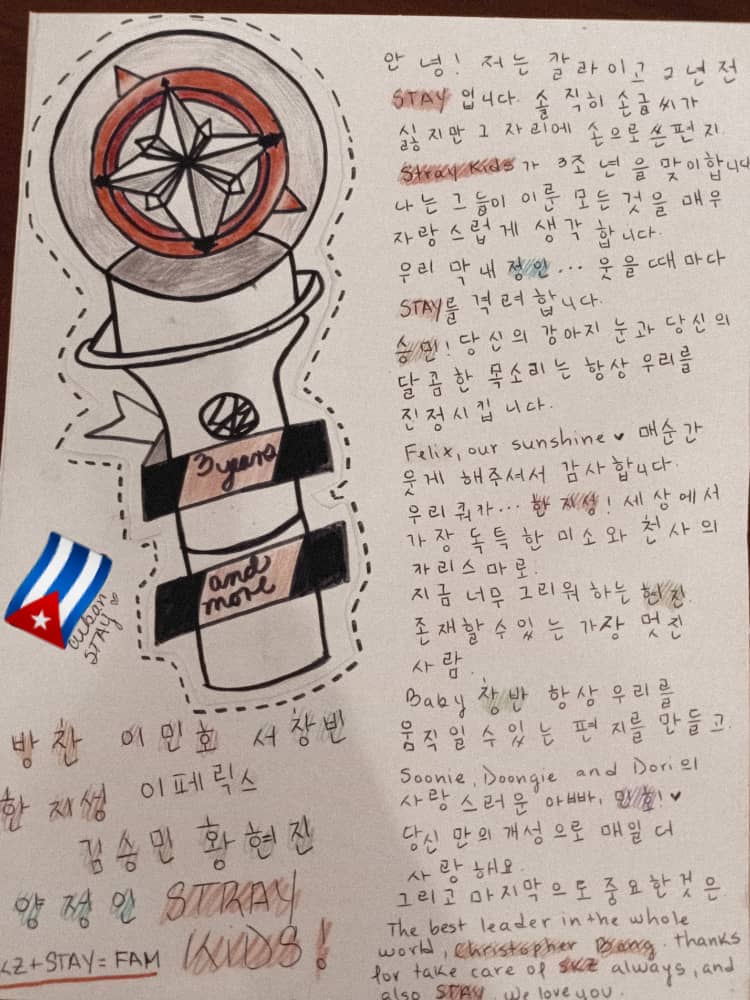 3 years
and
more
Cuban
STAY ♡
방 찬 이 민 호 서 창 빈
한 지 성 이 페 릭 스
김 승 민 황 현 진
양 정 인 STRAY
KIDS!
SKZ + STAY = FAM
안 녕! 저 는 칼 라 이 고 2 년 전
STAY 입니다. 솔 직히 손글씨가
싫지만 그 자리에 손으로 쓴 편 지.
Stray Kids가 3조 년 을 맞이합니
나는 그들이 이룬 모든 것을 매우
자랑 스럽 게 생각 합니다.
우리 막내 정인... 웃을 때 마다
STAY를 격려합니다.
승민! 당신의 강아지 눈과 당신의
달콤한 목소리는 항상 우리를
진정시킵 니다.
Felix, our sunshine ♥ 매순간
웃게 해주셔서 감사합니다.
우리 쿼카... 한 지성! 세상에서
가장 독특 한 미소와 천사의
카리스 마로.
지금 너무 그리워 하는 현진.
존재할 수 있 는 가장 멋 진
사 람.
Baby 창빈 항상 우리를
움직일 수 있 는 편 지를 만들고.
Soonie, Doongie and Dori의
사랑 스러운 아빠, 민호! ♥
당신 만의 개성으로 매일 더
사 랑 해요.
그리고 마지막 으로 중요한것은.
The best leader in the whole
world, Christopher Bang. thanks
for take care of SKZ always, and
also STAY. We love you.